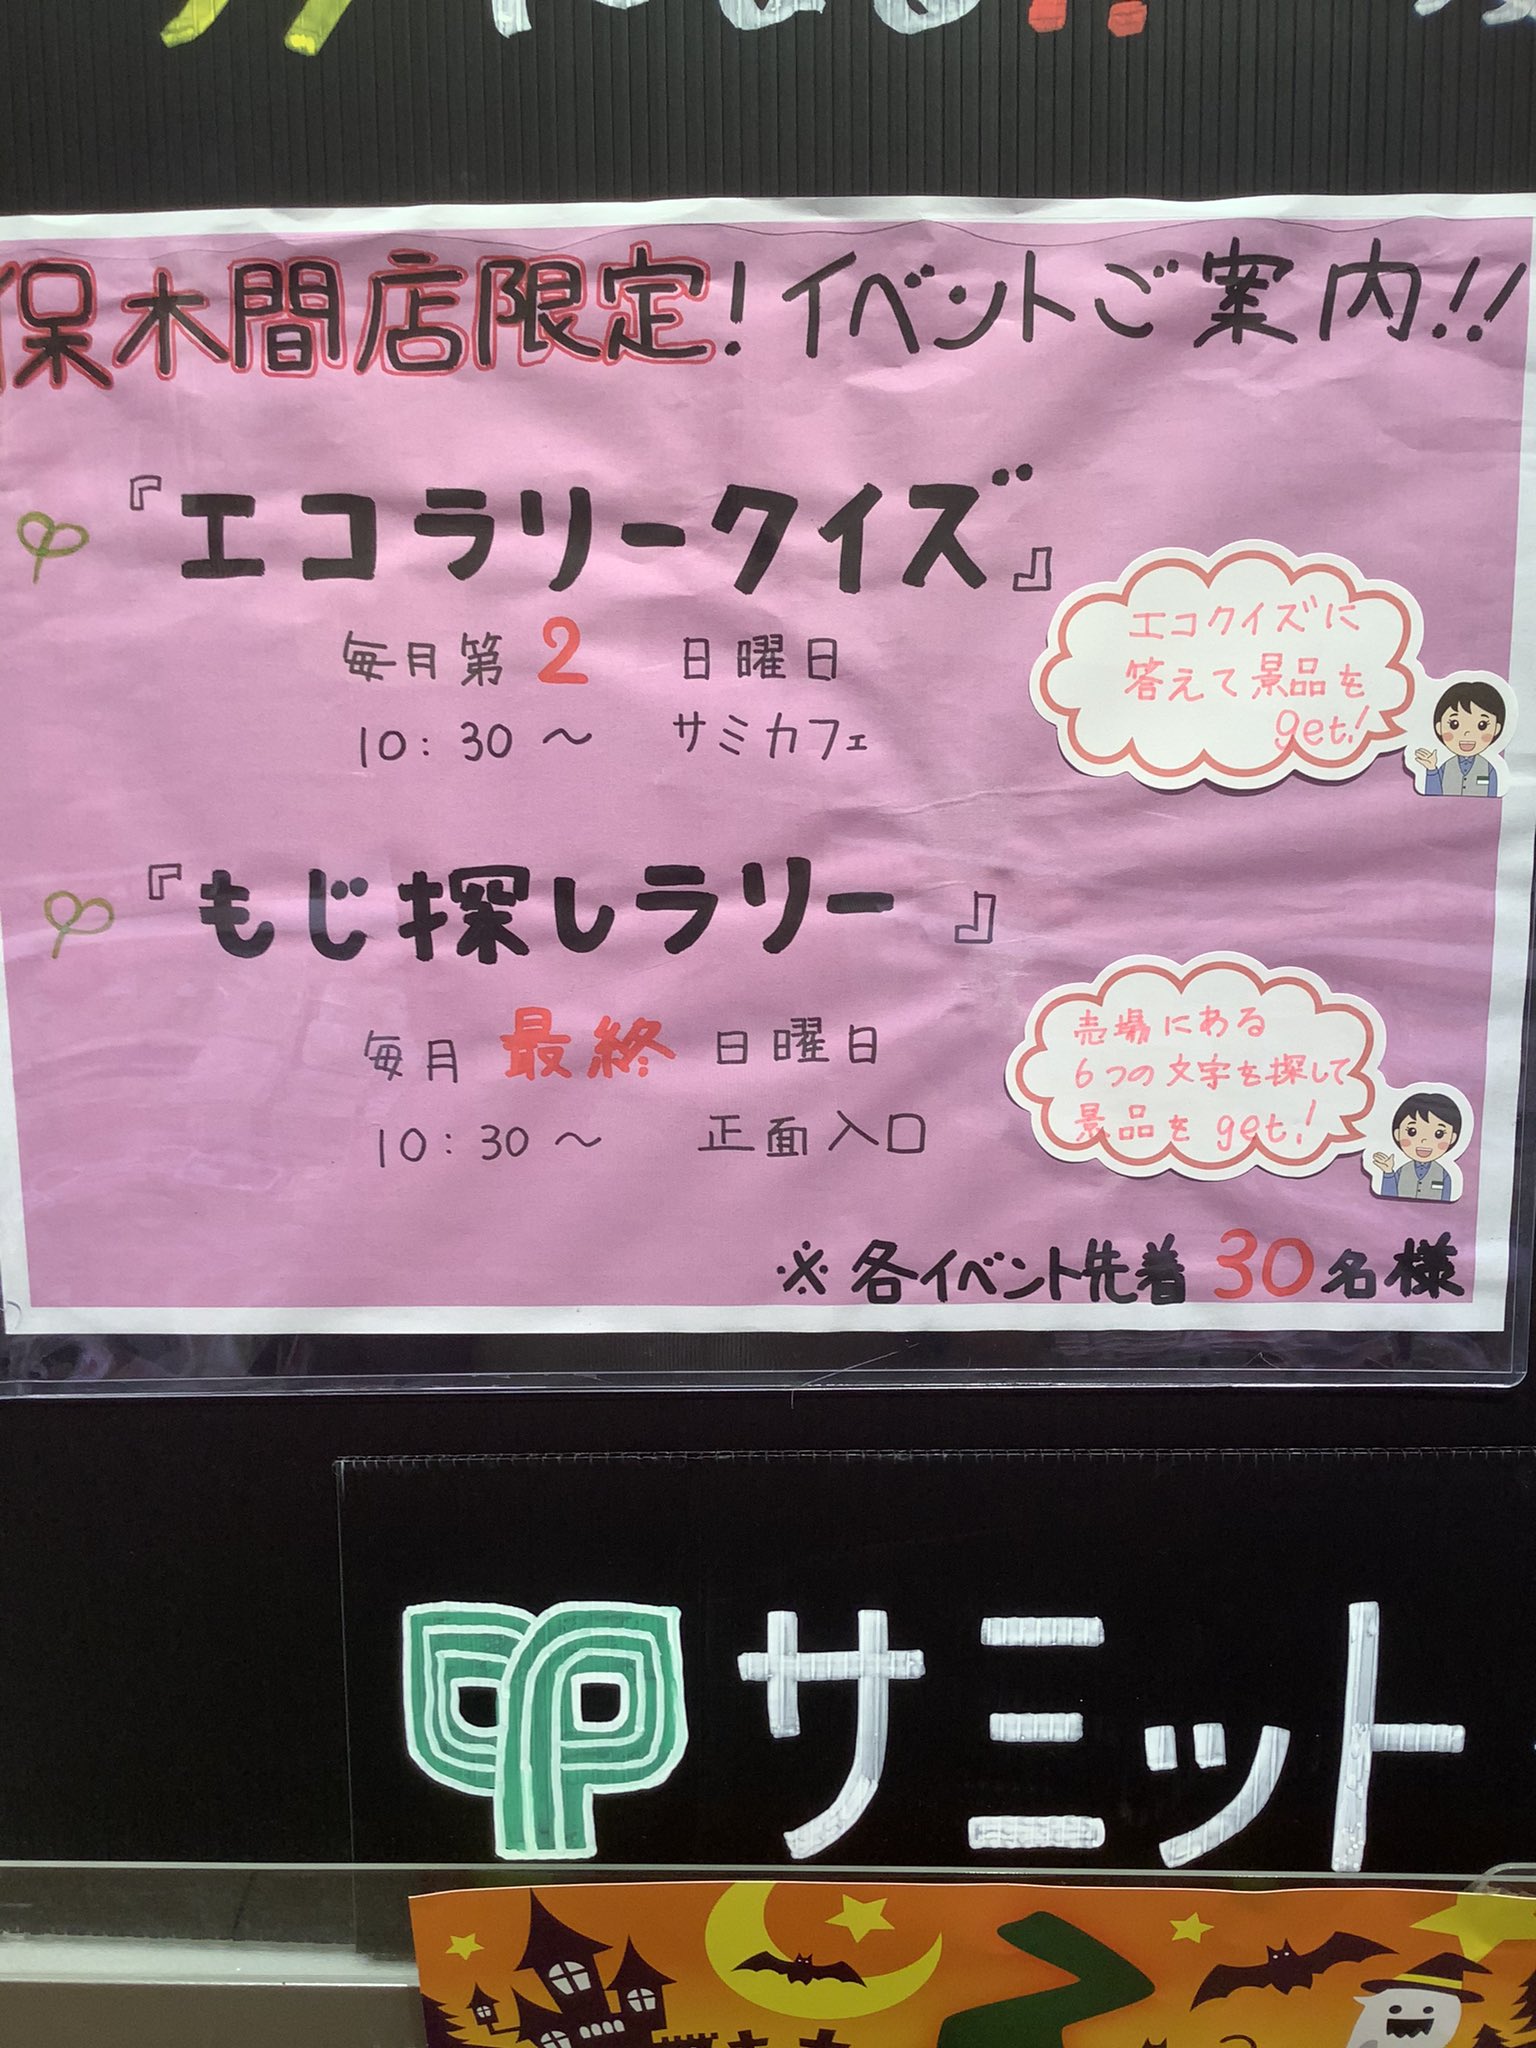 保木間店限定!イベントご案内!!
『エコラリークイズ』
毎月第2 日曜日
10:30〜 サミカフェ
エコクイズに
答えて景品を
get!
『もじ探しラリー』
毎月最終日曜日
10:30〜 正面入口
売場にある
6つの文字を探して
景品をget!
※各イベント先着30名様
サミット